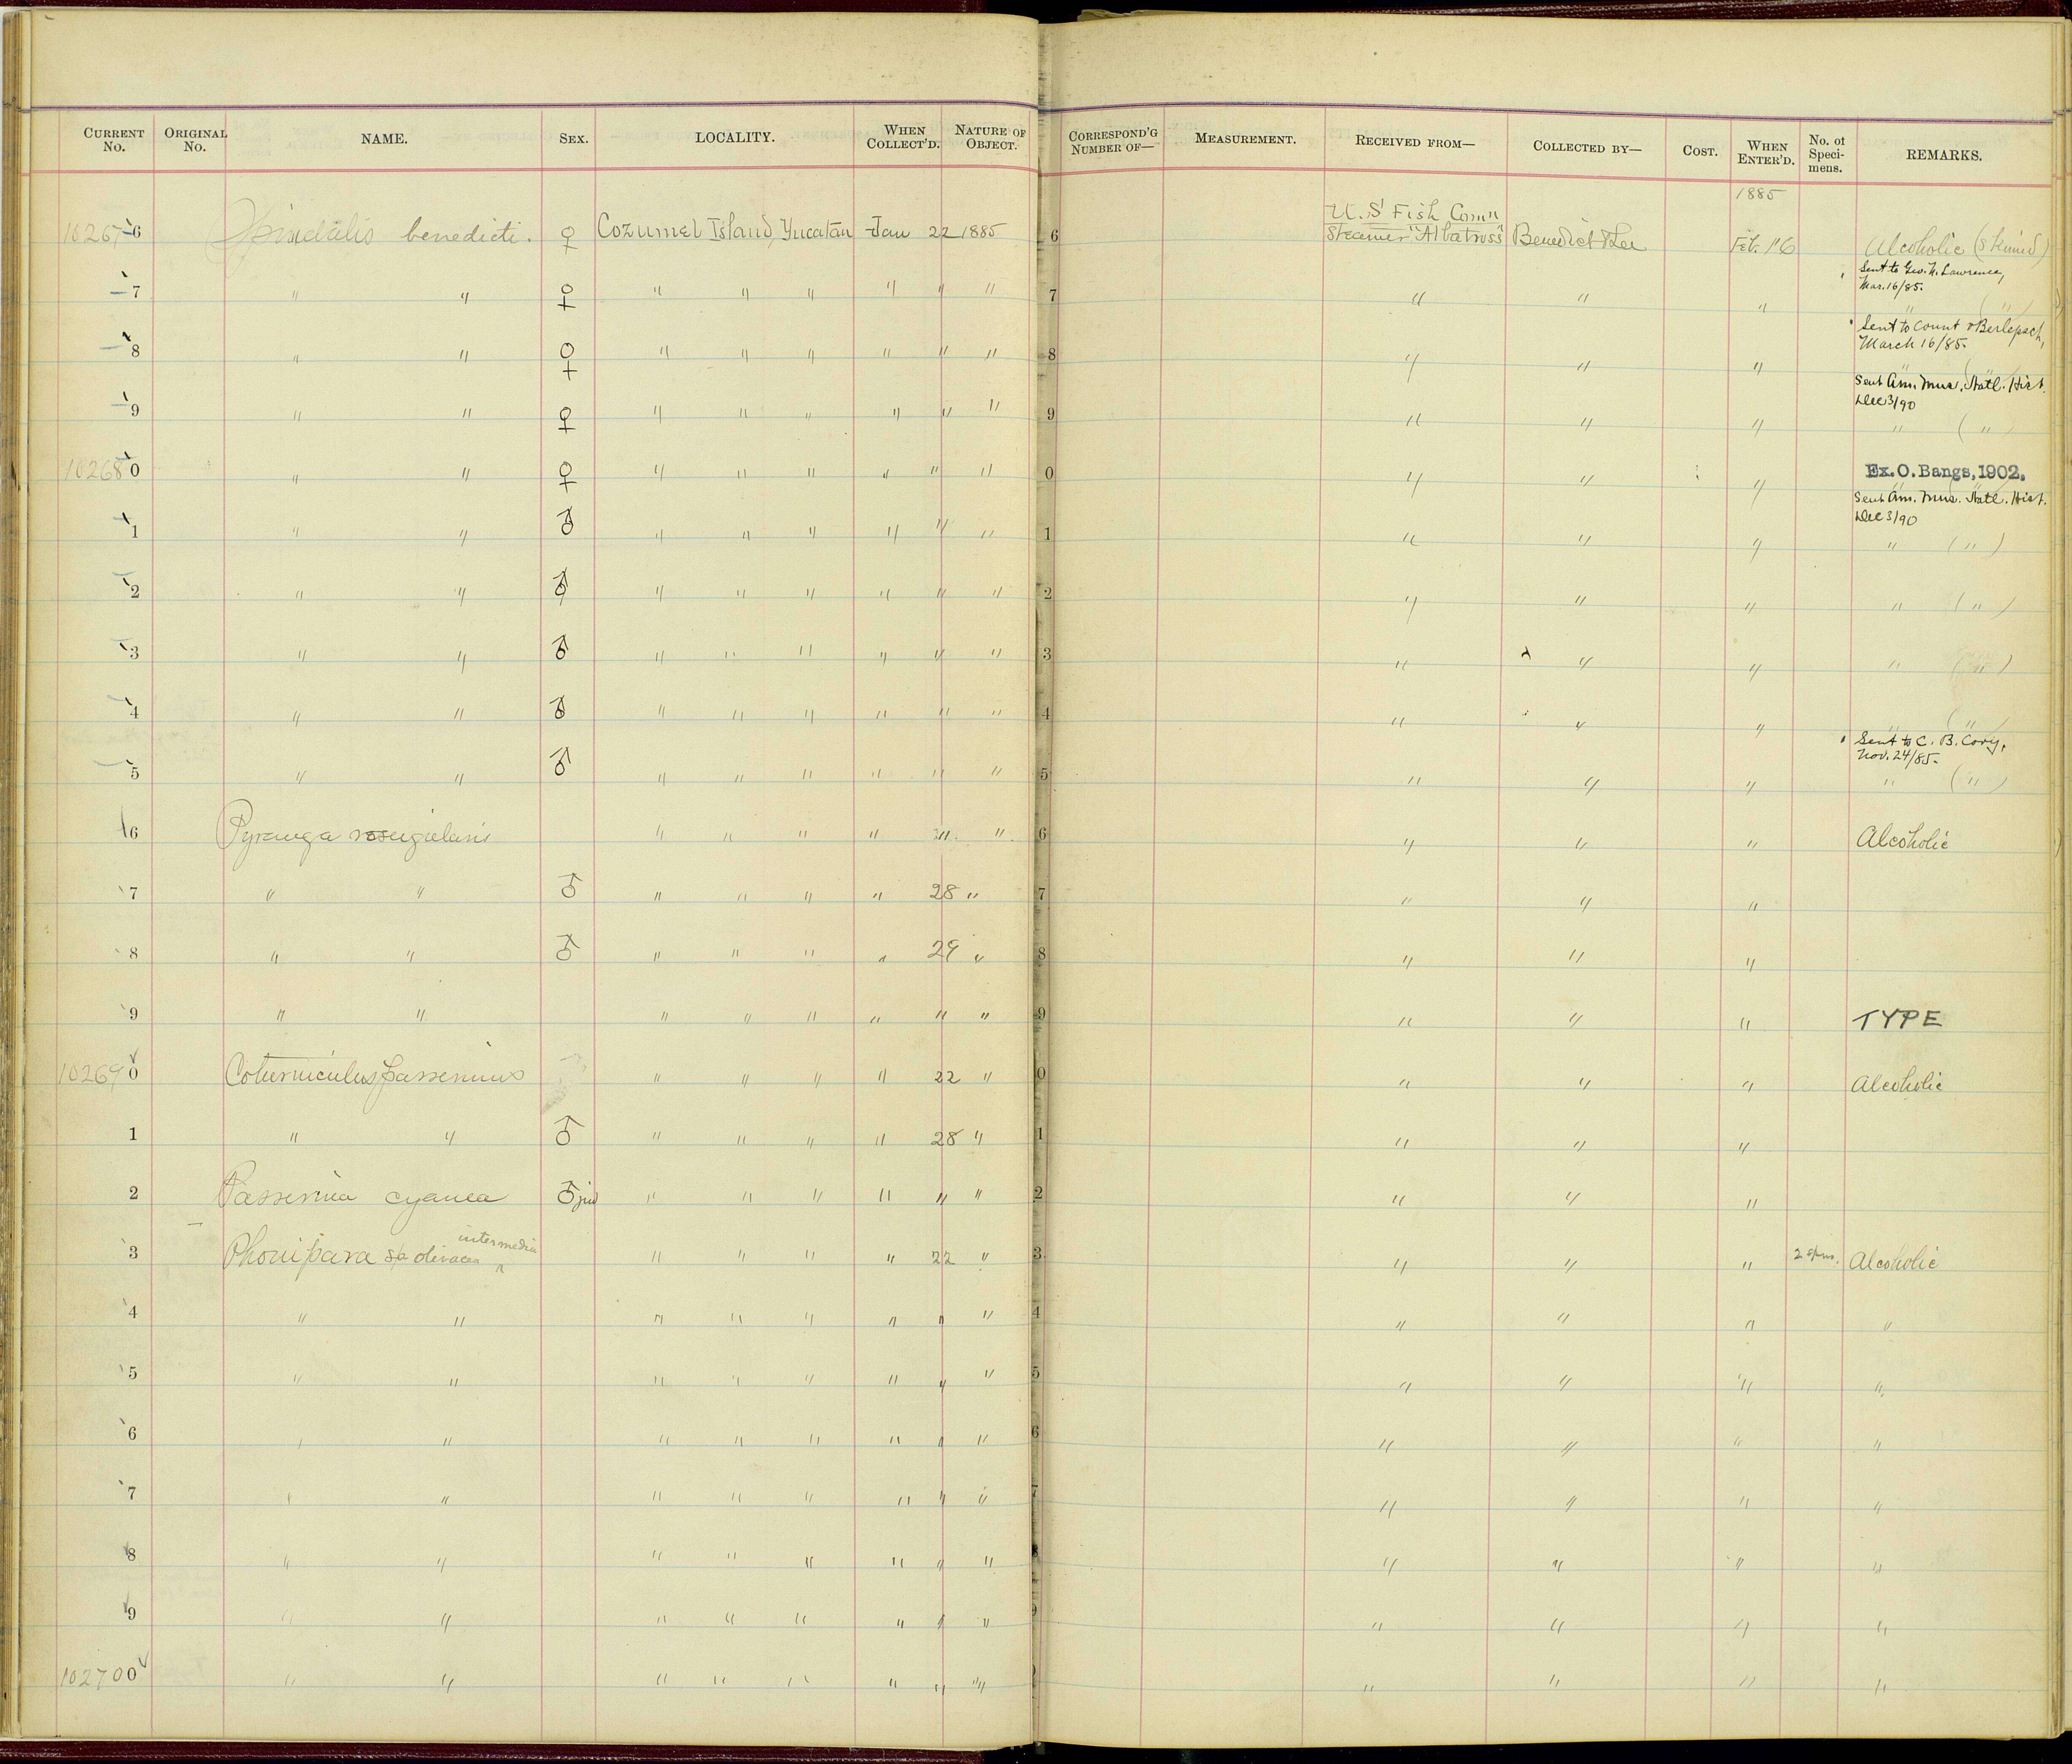 CURRENT No. ORIGINAL No. NAME. SEX. LOCALITY. WHEN COLLECT'D. NATURE OF OBJECT. CORRESPOND'G NUMBER OF— MEASUREMENT. RECEIVED FROM— COLLECTED BY— COST. WHEN ENTER'D. No. of Specimens. REMARKS.
1885
U. S. Fish Comn
102676 Spindalis benedicti. ♀ Cozumel Island, Yucatan Jan 22 1885 6 Steamer "Albatross" Benedict & Lee Feb. 16 Alcoholic (skinned)
Sent to Geo. N. Lawrence,
Mar. 16/85.
7 " " ♀ " " " " " " 7 " " " " ( " )
Sent to Count v Berlepsch,
March 16/85.
8 " " ♀ " " " " " " 8 " " " " ( " )
Sent Am. Mus. Natl. Hist.
Dec 3/90
9 " " ♀ " " " " " " 9 " " " " ( " )
102680 " " ♀ " " " " " " 0 " " " Ex. O. Bangs, 1902.
Sent Am. Mus. Natl. Hist.
Dec 3/90
1 " " ♂ " " " " " " 1 " " " " ( " )
2 " " ♂ " " " " " " 2 " " " " ( " )
3 " " ♂ " " " " " " 3 " " " " ( " )
4 " " ♂ " " " " " " 4 " " " " ( " )
Sent to C. B. Cory,
Nov. 24/85.
5 " " ♂ " " " " " " 5 " " " " ( " )
6 Pyranga " " " " " 6 " " " Alcoholic
7 " " ♂ " " " " 28 " 7 " " "
8 " " ♂ " " " " 29 " 8 " " "
9 " " " " " " " " 9 " " " TYPE
102690 Coturniculus passerinus " " " " 22 " 0 " " " Alcoholic
1 " " ♂ " " " " 28 " 1 " " "
2 Passerina cyanea ♂ juv " " " " " " 2 " " "
intermedia
3 Phonipara sp olivacea " " " " 22 " 3 " " " 2 spms. Alcoholic
4 " " " " " " " " 4 " " " "
5 " " " " " " " " 5 " " " "
6 " " " " " " " " 6 " " " "
7 " " " " " " " " 7 " " " "
8 " " " " " " " " 8 " " " "
9 " " " " " " " " 9 " " " "
102700 " " " " " " " " " " " "